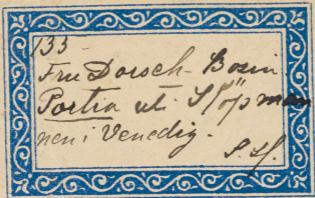 135-
Fru Dorsch-Bosin
Portia uti Köpman
nen i Venedig.
S. H.